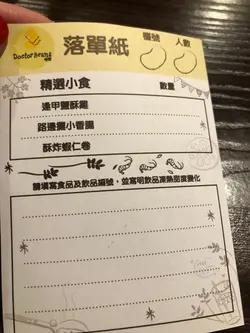 Doctor Beans
落單紙
檯號
人數
精選小食
數量
逢甲鹽酥雞
路邊攤小香腸
酥炸蝦仁卷
請填寫食品及飲品編號，並寫明飲品凍熱甜度變化